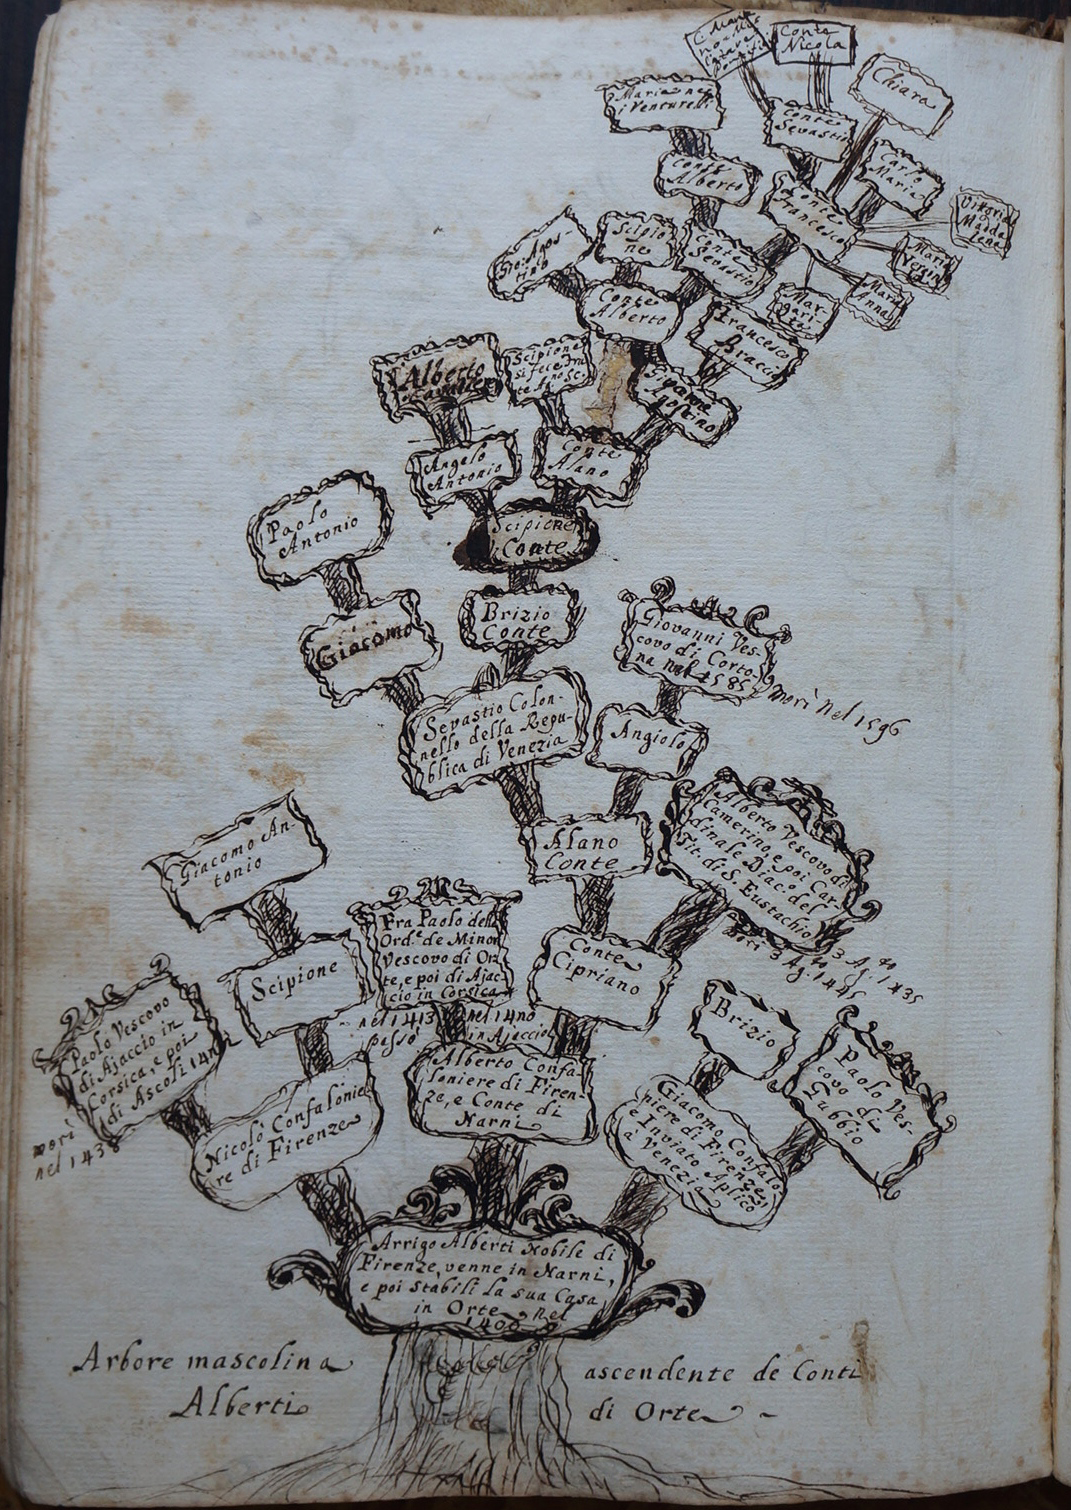 Conte
Nicola
Chiara
Maria
i Venturelli
Conte
Sevastio
Carlo
Maria
Conte
Alberto
Conte
Francesco
Vittoria
Madda
lena
Scipio
ne
Gio: Agos-
tino
Conte
Sevastio
Maria
Vergin
Maria
Anna
Mar-
gari-
ta
Conte
Alberto
Francesco
Braccio
Alberto
Scipione
si fece fra
te
Agostino
Angelo
Antonio
Conte
Alano
Paolo
Antonio
Scipione
Conte
Brizio
Conte
Giacomo
Giovanni Ves-
covo di Corto-
na nel 1585
Morì nel 1596
Sevastio Colon-
nello della Repu-
blica di Venezia
Angiolo
Alano
Conte
Alberto Vescovo di
Camerino, e poi Car-
dinale Diaco. del
Tit. di S. Eustachio
morì 3 Ag. 1445
3 Ag. 1435
Giacomo An-
tonio
Scipione
Fra Paolo dell
Ord.e de Minori
Vescovo di Or-
te, e poi di Ajac-
cio in Corsica
nel 1413 nel 1420
passò in Ajaccio
Conte
Cipriano
Paolo Vescovo
di Ajaccio in
Corsica, e poi
di Ascoli
morì
nel 1438
Brizio
Paolo Ves-
covo di
Gubbio
Nicolò Confalonie
re di Firenze
Alberto Confa-
loniere di Firen-
ze, e Conte di
Narni
Giacomo Confalo
niere di Firenze
e Inviato Aplico
a' Venezia
Arrigo Alberti Nobile di
Firenze, venne in Narni,
e poi stabilì la sua Casa
in Orte nel
1400
Arbore mascolina ascendente de Conti
Alberti di Orte -